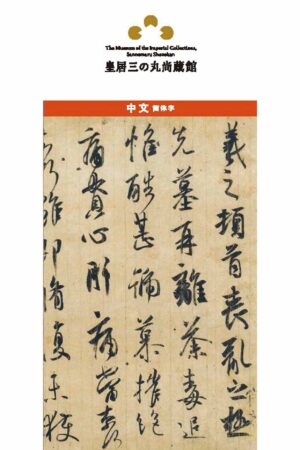 The Museum of the Imperial Collections,
Sannomaru Shozokan
皇居三の丸尚蔵館
中文 简体字
羲之頓首喪乱之極
先墓再離荼毒追
惟酷甚號慕摧絶
痛貫心肝痛當奈何
奈何雖即脩復未獲